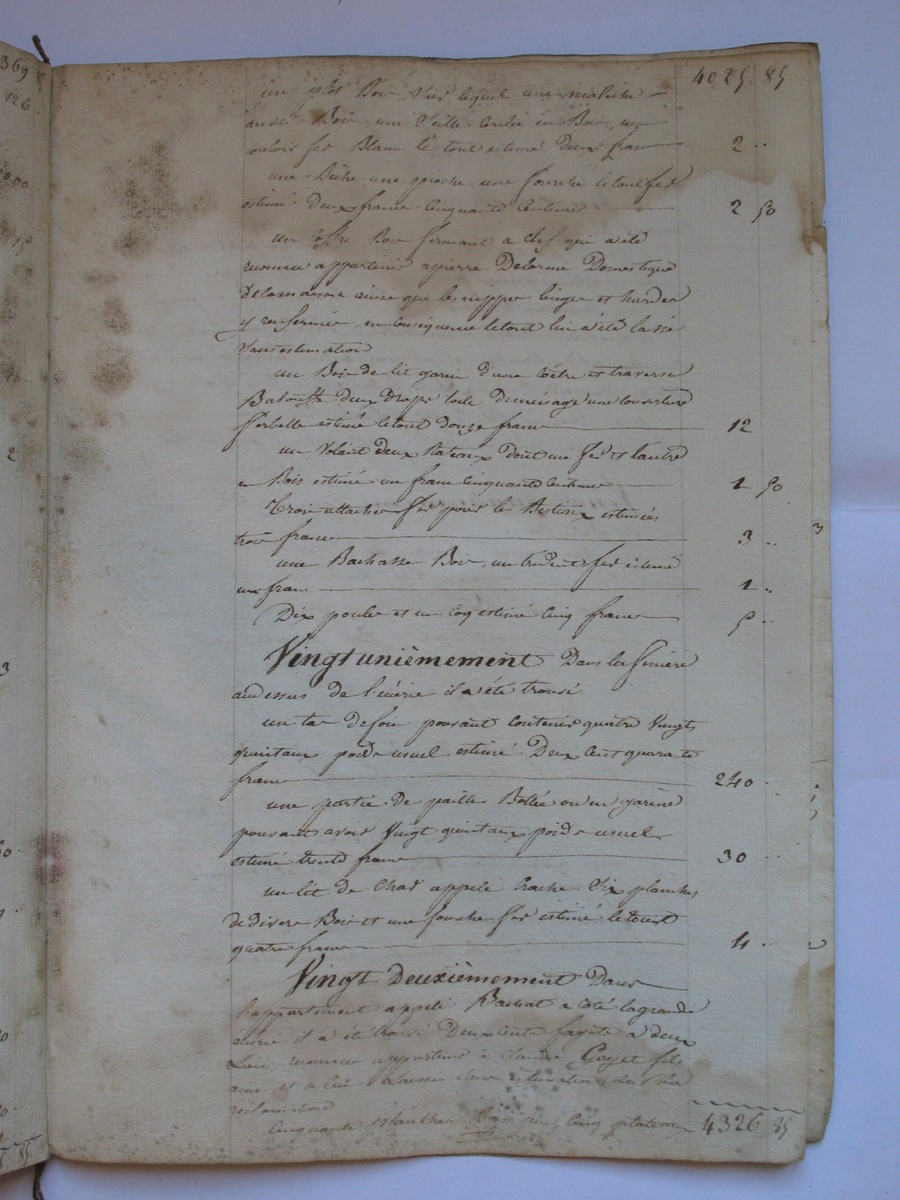 4025 85
un plot Bois sus lequel une
aussi Bois, une Seille Cerclée en Bois, un
couloir fer Blanc le tout estimé deux francs 2 ..
une Bêche une pioche une fourche le tout fer
estimé deux francs Cinquante Centimes 2 50
un coffre Bois fermant a Clef qui a été
reconnu appartenir a pierre Delorme Domestique
de la maison ainsi que les nippes linges et hardes
y renfermés, en Conséquence le tout lui a été laissé
sans estimation
un Bois de lit garni d'une Coëtre et traversin
Balouffe deux draps toile de ménage une Couverture
Sarbelle estimé le tout douze francs 12
un Volant deux Rateaux dont un fer et l'autre
en Bois estimé un franc Cinquante Centimes 1 50
Trois attaches fer pour les Bestiaux estimées
trois francs 3 ..
une Bachasse Bois, un trident fer estimé
un franc 1 ..
Dix poules et un coq estimé Cinq francs 5
Vingt unièmement Dans la fenière
au dessus de l'écurie il a été trouvé
un tas de foin pouvant Contenir quatre Vingts
quintaux poids usuel estimé Deux Cent quarante
francs 240
une partie de paille Bottée ou en garène
pouvant avoir Vingt quintaux poids usuel
estimé trente francs 30
un lit de Char appelé Crache Six planches
de divers Bois et une fourche fer estimé le tout
quatre francs 4
Vingt Deuxièmement Dans
l'appartement appelé Bachat a coté la grande
écurie il a été trouvé Deux Cents fagots a deux
Liens, reconnus appartenir a Claude Goyet fils
ainé et a lui laissés sans estimation sur sa
réclamation
Cinquante planches Bois, Cinq plateaux
4326 85